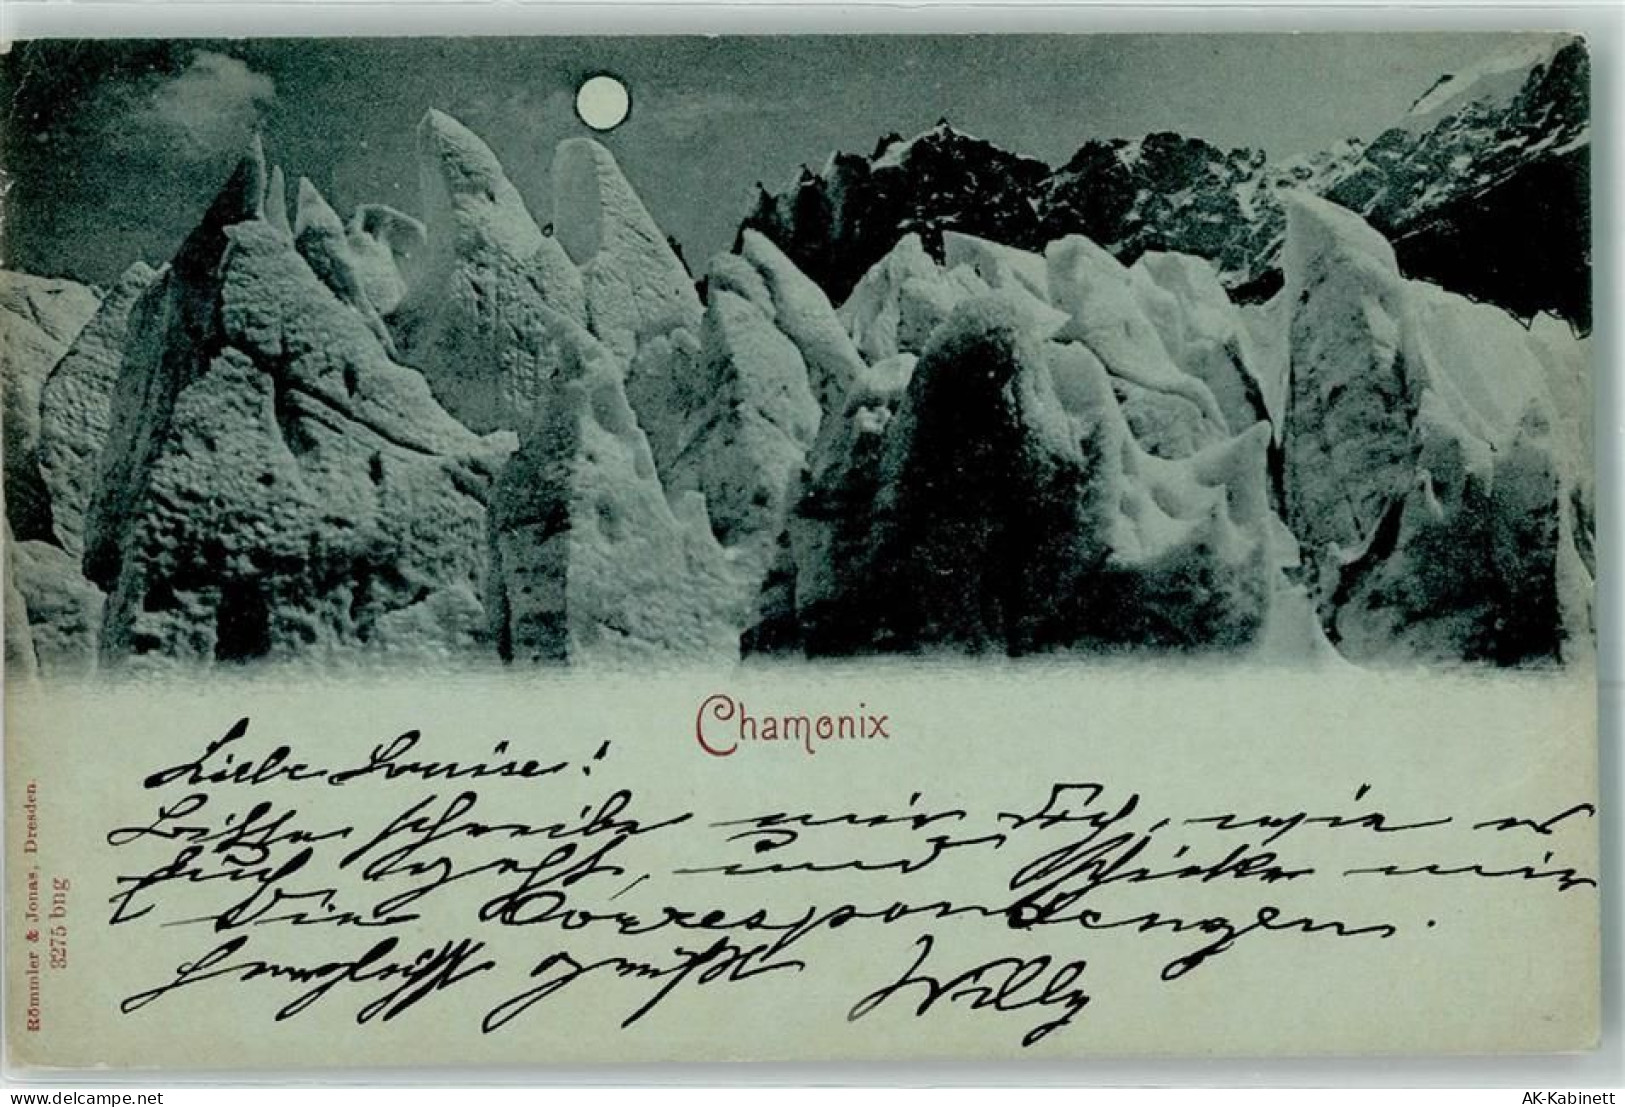 Chamonix
Liebe Louise!
Bitte schreibe mir doch, wie es
Euch geht, und schicke mir
die Correspondenzen.
Herzlichst grüßt Willy
Römmler & Jonas, Dresden.
3275 bng
www.delcampe.net
tintin16
AK-Kabinett